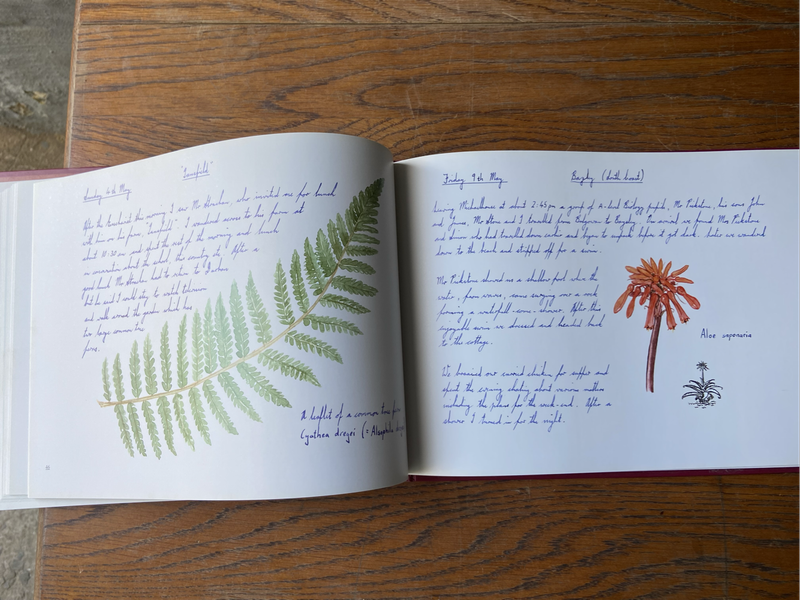 "Sunnyfield"
Sunday 4th May
After the church this morning I saw Mr Strachan, who invited me for lunch
with him on his farm, I wandered across to his farm at
about 10:30 am and spent the rest of the morning and lunch
in conversation about the school, the country etc. After a
good lunch Mr Strachan had to return to
but he said I could stay to watch television
and walk around the garden which has
two large common tree
ferns.
A leaflet of a common tree fern
Cyathea dregei (= Alsophila
Friday 9th May
(South Coast)
Leaving Michaelhouse at about 2:45pm a group of Biology pupils, Mr Pickstone, his sons John
and Mr Stone and I travelled from Balgowan to On arrival we found Mrs Pickstone
and she had travelled down earlier and began to unpack before it got dark. Later we wandered
down to the beach and stripped off for a swim.
Mr Pickstone showed me a shallow pool where the
water, from waves, came surging over a rock
forming a waterfall-come-shower. After this
enjoyable swim we dressed and headed back
to the cottage.
We braaied our curried chicken for supper and
spent the evening chatting about various matters
including the plans for the week-end. After a
shower I turned in for the night.
Aloe saponaria